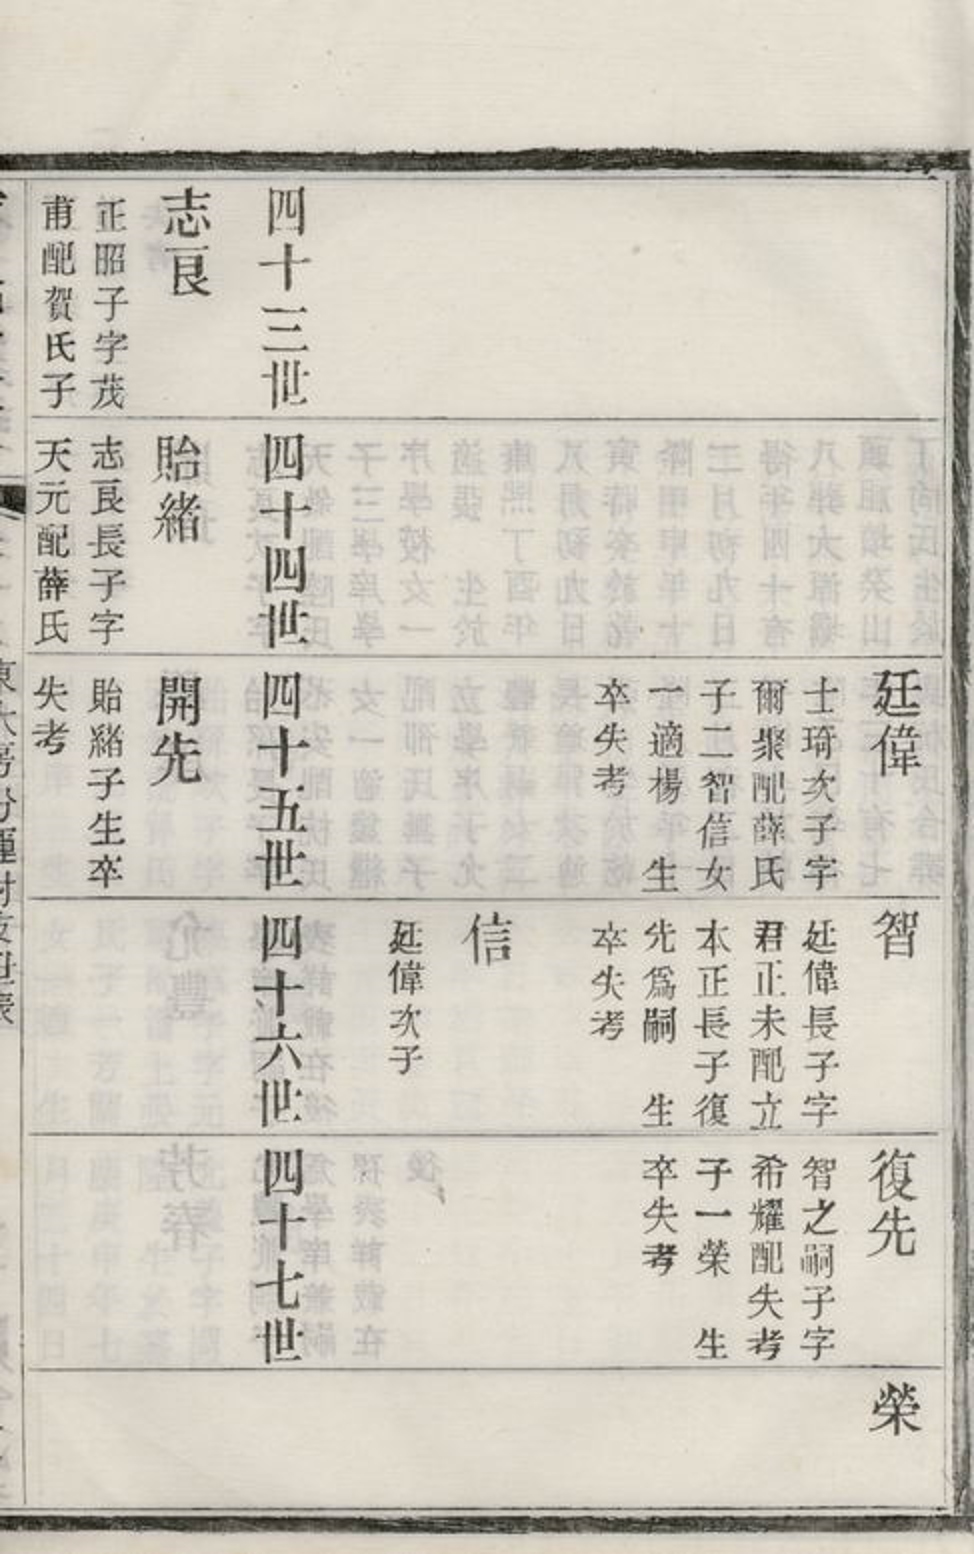 廷偉
士琦次子字
爾聚配薛氏
子二智信女
一適楊　生
卒失考
智
廷偉長子字
君正未配立
本正長子復
先爲嗣　生
卒失考
信
廷偉次子
復先
智之嗣子字
希耀配失考
子一榮　生
卒失考
榮
四十三世
四十四世
四十五世
四十六世
四十七世
志良
正昭子字茂
甫配賀氏子
貽緒
志良長子字
天元配薛氏
開先
貽緒子生卒
失考